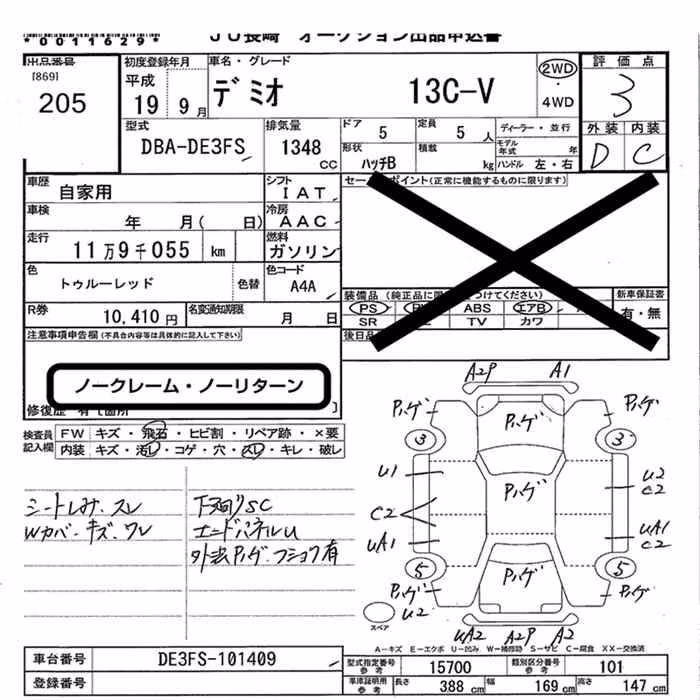 *0011629*
JU長崎 オークション出品申込書
出品番号
[869]
205
初度登録年月
平成
19 9月
車名・グレード
デミオ 13C-V
2WD
・
4WD
評価点
3
外装 内装
D C
型式
DBA-DE3FS
排気量
1348
CC
ドア 5
定員 5 人
ディーラー・並行
形状 ハッチB
積載 kg
モデル年式 年
ハンドル 左・右
車歴 自家用
シフト IAT
車検 年 月( 日)
冷房 AAC
走行 11万9千055 km
燃料 ガソリン
色 トゥルーレッド 色替
色コード A4A
R券 10,410円
名変通知期限 月 日
セールスポイント(正常に機能するものに限ります)
装備品
つけてください)
新車保証書
PS ABS エアB
有・無
SR TV カワ
後日品
注意事項申告欄(不具合内容等は具体的に記入して下さい)
ノークレーム・ノーリターン
修復歴
検査員記入欄
FW キズ・飛石・ヒビ割・リペア跡・×要
内装 キズ・汚レ・コゲ・穴・スレ・キレ・破レ
シートしみ、スレ
Wカバーキズ、ワレ
下廻りSC
エンドパネルU
外装Pハゲ・フショク有
A2P A1
Pハゲ Pハゲ Pハゲ
3 3
U1 Pハゲ U2
C2
C2
UA1 UA1
C2
5 5
Pハゲ Pハゲ Pハゲ
U2
スペア
UA2 A2P A2
A－キズ E－エクボ U－凹み W－補修跡 S－サビ C－腐食 XX－交換済
車台番号 DE3FS-101409
登録番号
型式指定番号 参考 15700
類別区分番号 参考 101
車庫証明用 参考 長さ 388 cm 幅 169 cm 高さ 147 cm